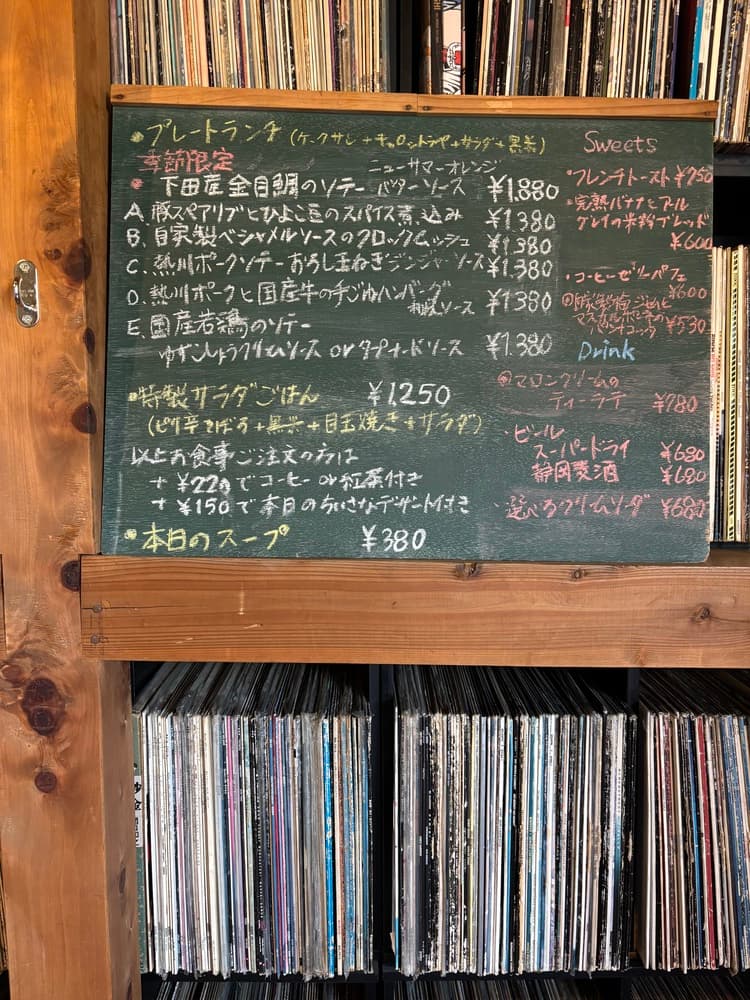 ・プレートランチ (ケークサレ+キャロットラペ+サラダ+黒米)
季節限定
ニューサマーオレンジ
・下田産金目鯛のソテー バターソース ¥1,880
A. 豚スペアリブとひよこ豆のスパイス煮込み ¥1380
B. 自家製ベシャメルソースのクロックムッシュ ¥1380
C. 熱川ポークソテーおろし玉ねぎジンジャーソース ¥1.380
D. 熱川ポークと国産牛の手ごねハンバーグ
和風ソース ¥1380
E. 国産若鶏のソテー
ゆずこしょうクリームソース or タプナードソース ¥1.380
・特製サラダごはん ¥1,250
(ピリ辛そぼろ+黒米+目玉焼き+サラダ)
以上お食事ご注文の方は
+¥220でコーヒーor紅茶付き
+¥150で本日のちいさなデザート付き
・本日のスープ ¥380
Sweets
・フレンチトースト ¥750
・完熟バナナとアール
グレイの米粉ブレッド
¥600
・コーヒーゼリーパフェ
¥600
自家製梅ジャムと
マスカルポーネの
¥530
Drink
マロンクリームの
ティーラテ ¥780
・ビール
スーパードライ ¥680
静岡麦酒 ¥680
・選べるクリームソーダ ¥680